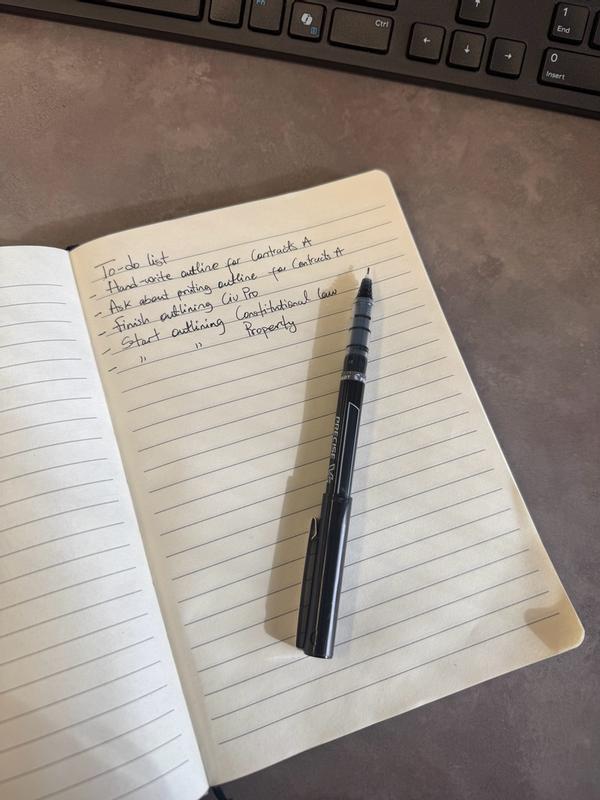 Fn
Ctrl
←
↑
↓
→
1
End
0
Insert
To-do list
- Hand-write outline for Contracts A
- Ask about printing outline for Contracts A
- Finish outlining Civ Pro
- Start outlining Constitutional Law
- " " Property
PRECISE V5